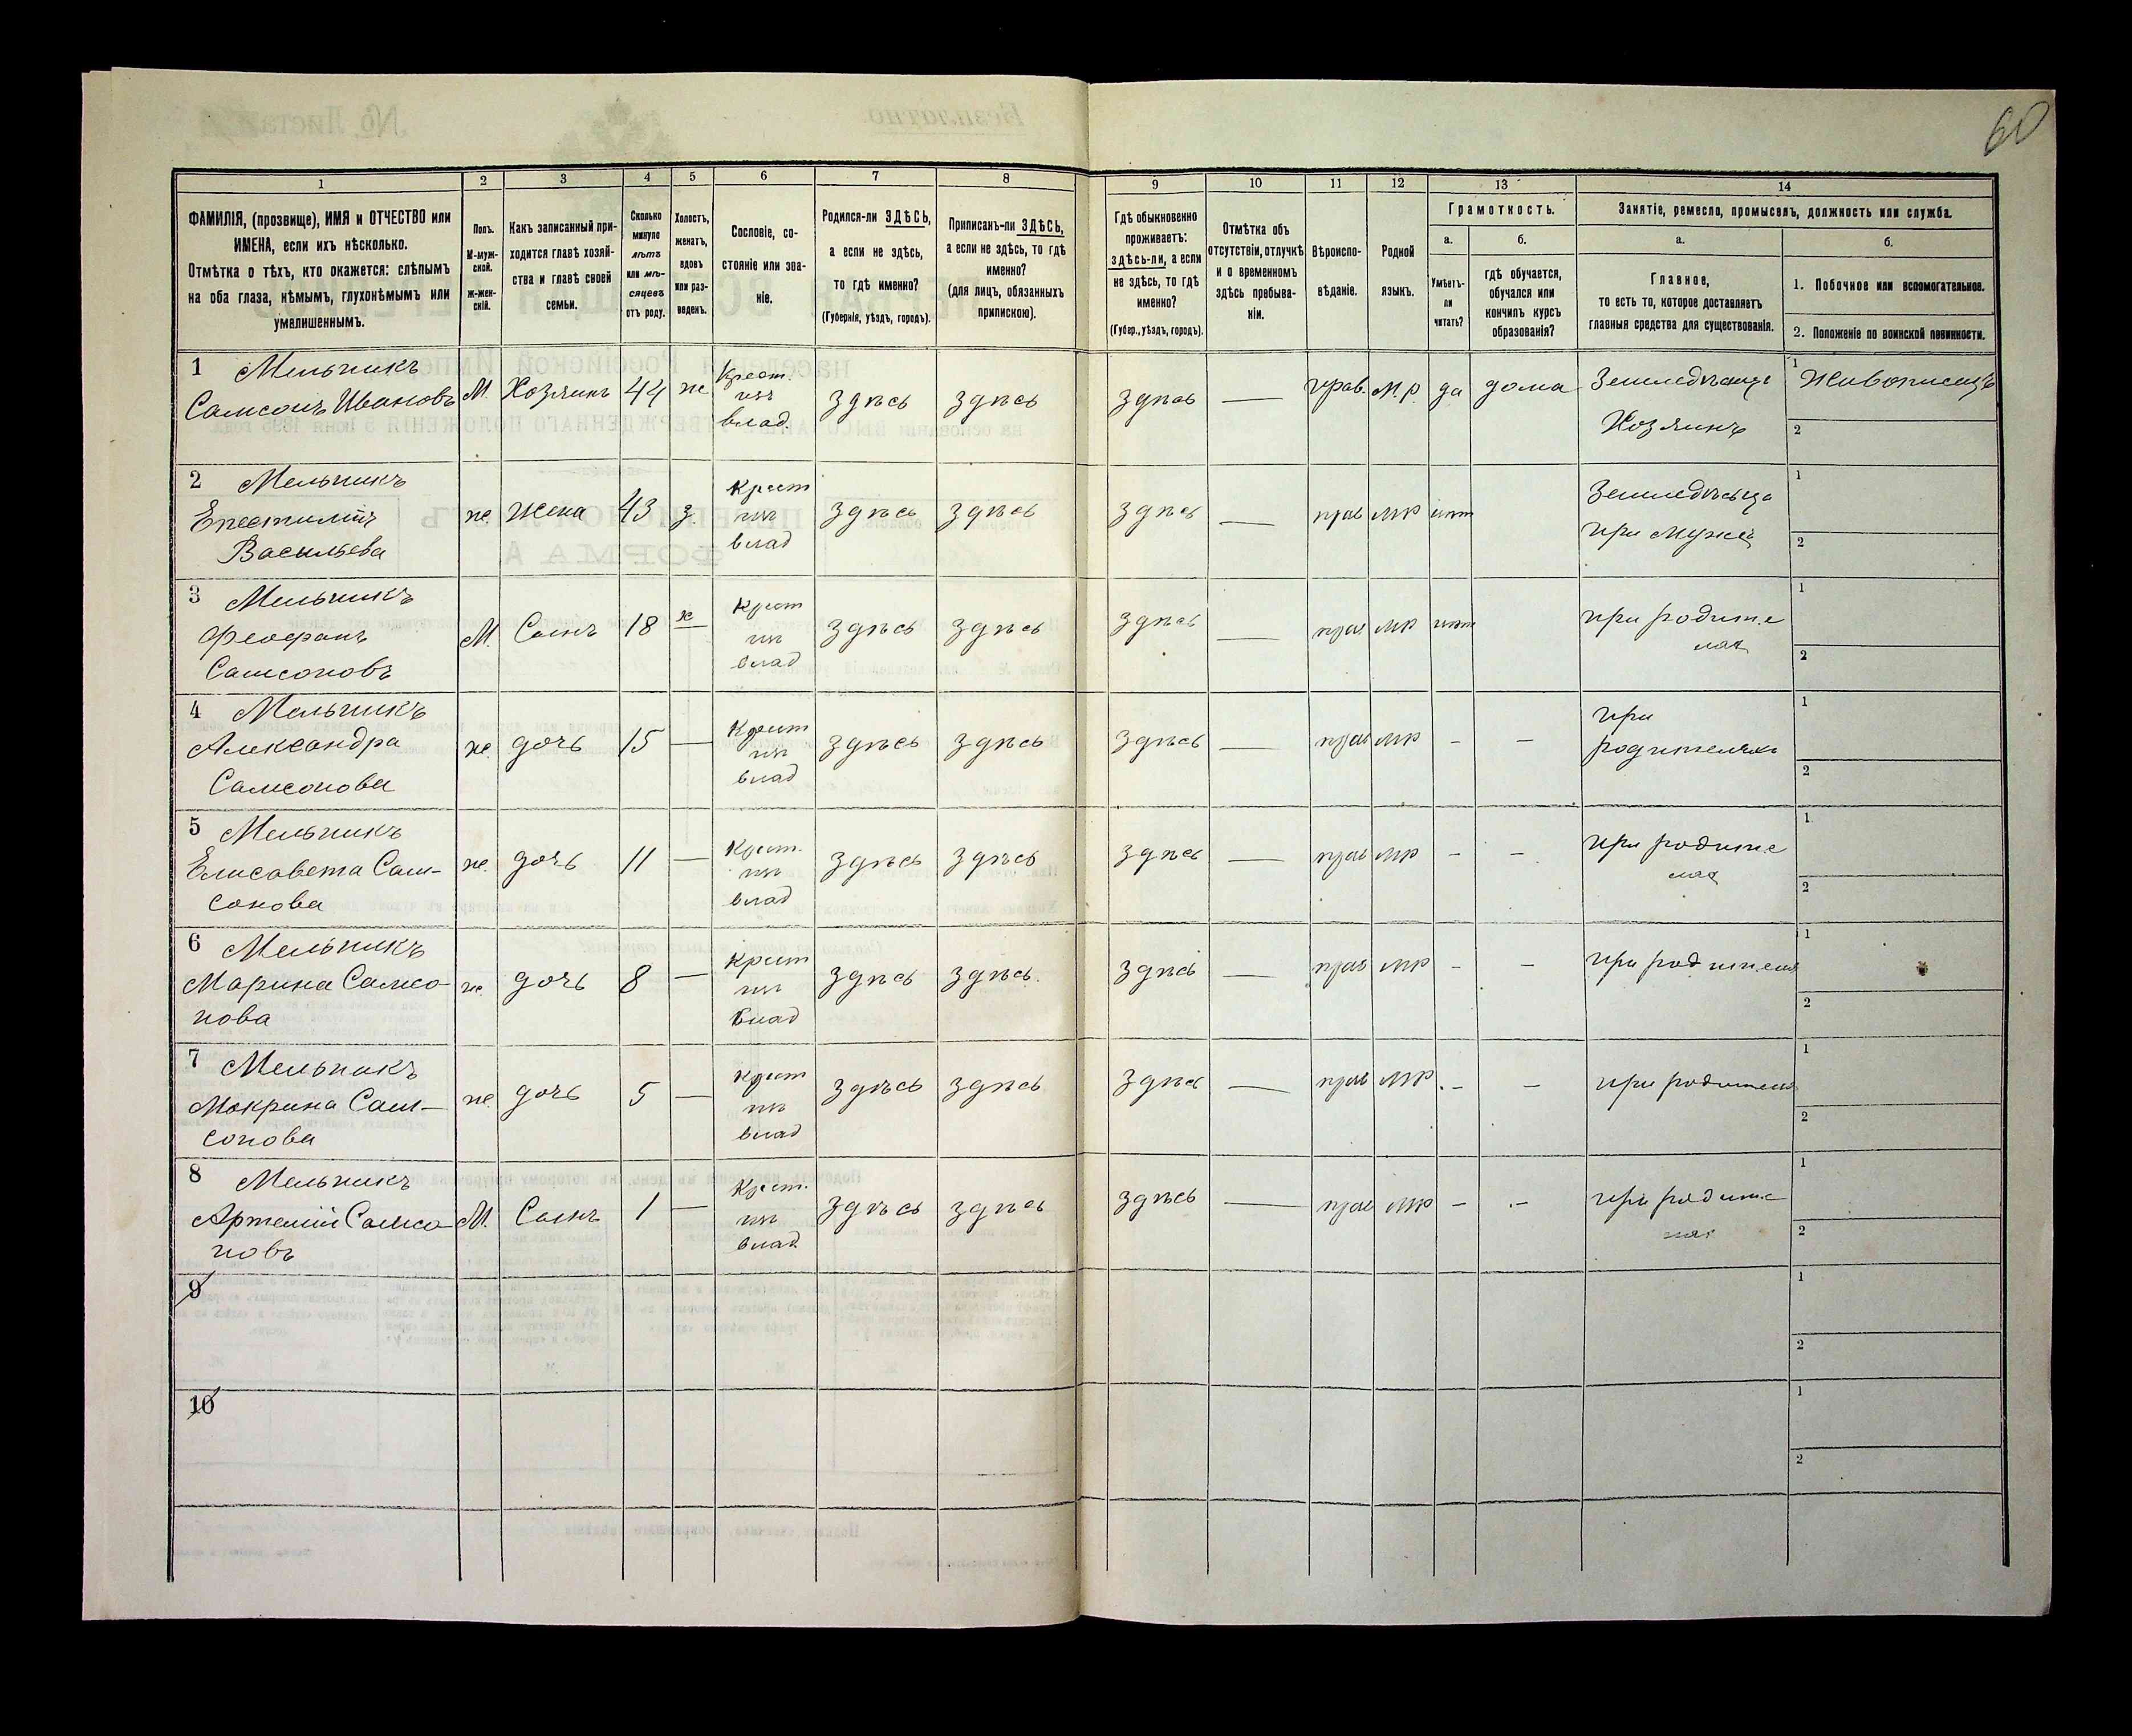 60
1
2
3
4
5
6
7
8
9
10
11
12
13
14
ФАМИЛІЯ, (прозвище), ИМЯ и ОТЧЕСТВО или
ИМЕНА, если ихъ нѣсколько.
Отмѣтка о тѣхъ, кто окажется: слѣпымъ
на оба глаза, нѣмымъ, глухонѣмымъ или
умалишеннымъ.
Полъ.
М-муж-
ской.
ж-жен-
скій.
Какъ записанный при-
ходится главѣ хозяй-
ства и главѣ своей
семьи.
Сколько
минуло
лѣтъ
или мѣ-
сяцевъ
отъ роду.
Холостъ,
женатъ,
вдовъ
или раз-
веденъ.
Сословіе, со-
стояніе или зва-
ніе.
Родился-ли ЗДѢСЬ,
а если не здѣсь,
то гдѣ именно?
(Губернія, уѣздъ, городъ).
Приписанъ-ли ЗДѢСЬ,
а если не здѣсь, то гдѣ
именно?
(для лицъ, обязанныхъ
припискою).
Гдѣ обыкновенно
проживаетъ:
здѣсь-ли, а если
не здѣсь, то гдѣ
именно?
(Губер., уѣздъ, городъ).
Отмѣтка объ
отсутствіи, отлучкѣ
и о временномъ
здѣсь пребыва-
ніи.
Вѣроиспо-
вѣданіе.
Родной
языкъ.
Грамотность.
а.
Умѣетъ-
ли
читать?
б.
гдѣ обучается,
обучался или
кончилъ курсъ
образованія?
Занятіе, ремесло, промыселъ, должность или служба.
а.
Главное,
то есть то, которое доставляетъ
главныя средства для существованія.
б.
1. Побочное или вспомогательное.
2. Положеніе по воинской повинности.
1 Мельникъ
Самсонъ Ивановъ
М. Хозяинъ 44 ж
Крест.
влад.
здѣсь здѣсь здѣсь — прав. м.р. да дома
Земледѣлецъ
Хозяинъ
1 Живописецъ
2
2 Мельникъ
Васильева
ж. жена 43 з.
Крест
влад
здѣсь здѣсь здѣсь — прав мр нѣт
при мужѣ
1
2
3 Мельникъ
Феофанъ
Самсоновъ
М. Сынъ 18
Крест
влад
здѣсь здѣсь здѣсь — прав мр нѣт
при родите
лях
1
2
4 Мельникъ
Александра
Самсонова
ж. дочь 15 —
Крест
влад
здѣсь здѣсь здѣсь — прав мр - -
при
родителях
1
2
5 Мельникъ
Елисавета Сам-
сонова
ж. дочь 11 —
Крест.
влад
здѣсь здѣсь здѣсь — прав мр - -
при родите
лях
1
2
6 Мельникъ
Марина Самсо-
нова
ж. дочь 8 —
Крест
влад
здѣсь здѣсь здѣсь — прав мр - -
при родителя
1
2
7 Мельникъ
Мокрина Сам-
сонова
ж. дочь 5 —
Крест
влад
здѣсь здѣсь здѣсь — прав мр - -
при родителя
1
2
8 Мельникъ
Артемій Самсо-
новъ
М. Сынъ 1 —
Крест.
влад
здѣсь здѣсь здѣсь — прав мр - -
при родите
лях
1
2
9
1
2
10
1
2